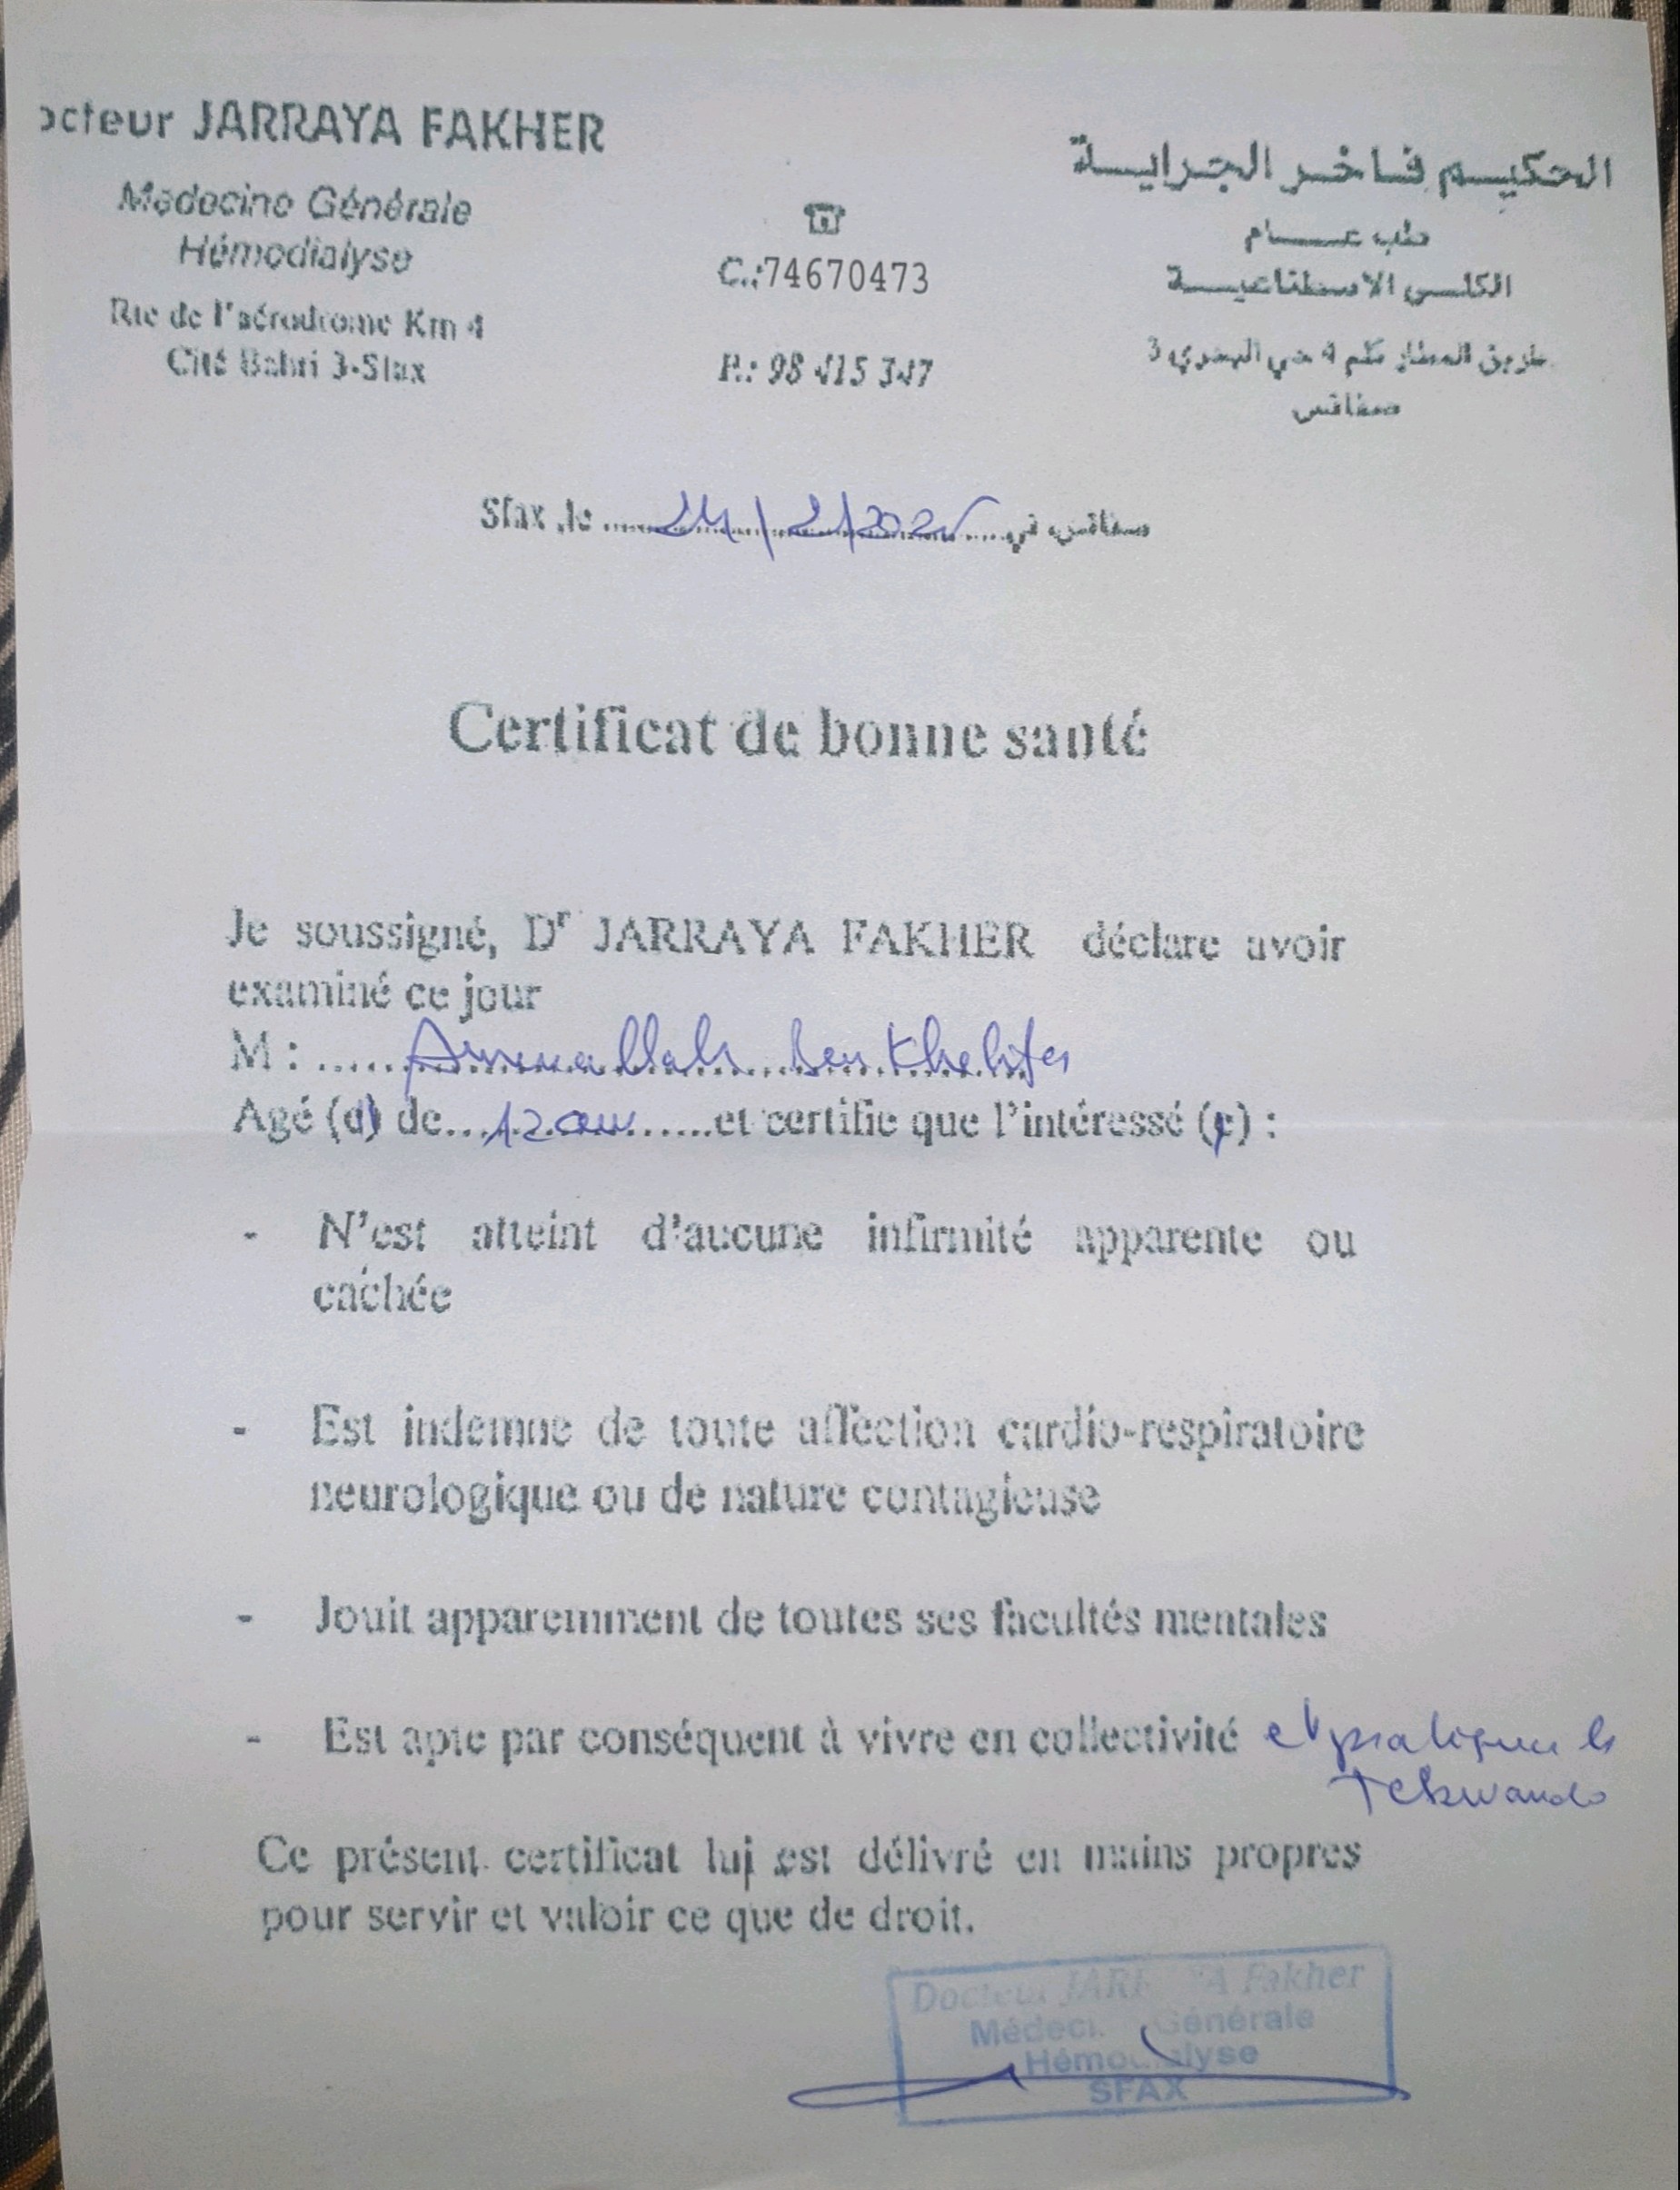 octeur JARRAYA FAKHER
Médecine Générale
Hémodialyse
Rte de l'aérodrome Km 4
Cité Bahri 3-Sfax
☎
C.:74670473
P.: 98 415 347
الحكيم فاخر الجراية
طب عام
الكلى الاصطناعية
طريق المطار كلم 4 حي البحري 3
صفاقس
Sfax ,le ...../2/202..... صفاقس في
Certificat de bonne santé
Je soussigné, Dr JARRAYA FAKHER déclare avoir
examiné ce jour
M : ..... Amenallah ben Khelifa
Agé (d) de... 12 ans ......et certifie que l'intéressé (e) :
- N'est atteint d'aucune infirmité apparente ou
cachée
- Est indemne de toute affection cardio-respiratoire
neurologique ou de nature contagieuse
- Jouit apparemment de toutes ses facultés mentales
- Est apte par conséquent à vivre en collectivité et pratiquer le
Tekwando
Ce présent certificat lui est délivré en mains propres
pour servir et valoir ce que de droit.
Docteur JARRAYA Fakher
Médecine Générale
Hémodialyse
SFAX